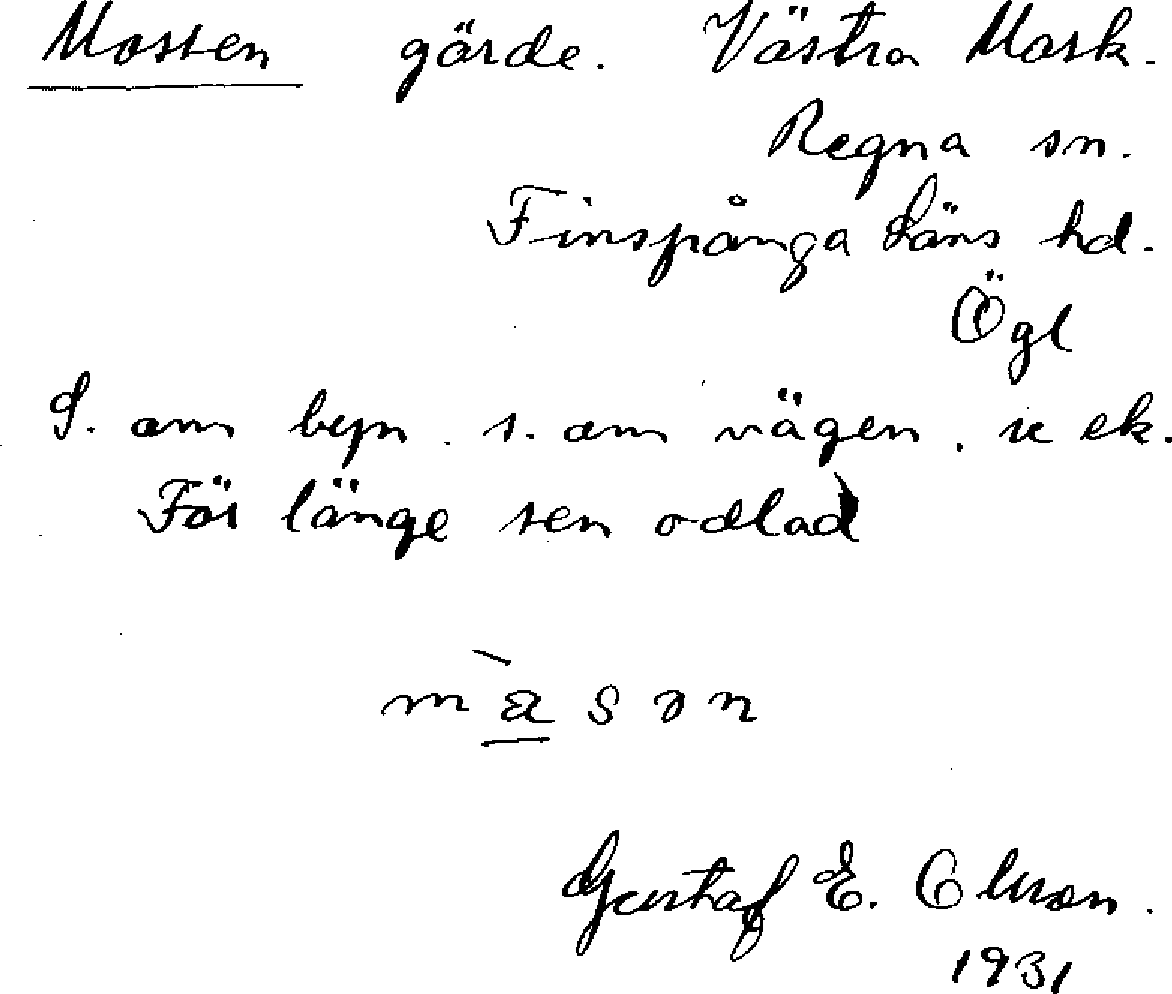 Mossen gärde. Västra Mark.
Regna sn.
Finspånga läns hd.
Ögl
S. om byn. s. om vägen. se ek.
För länge sen odlad
m̀a s ə n
Gustaf E. Olsson.
1931